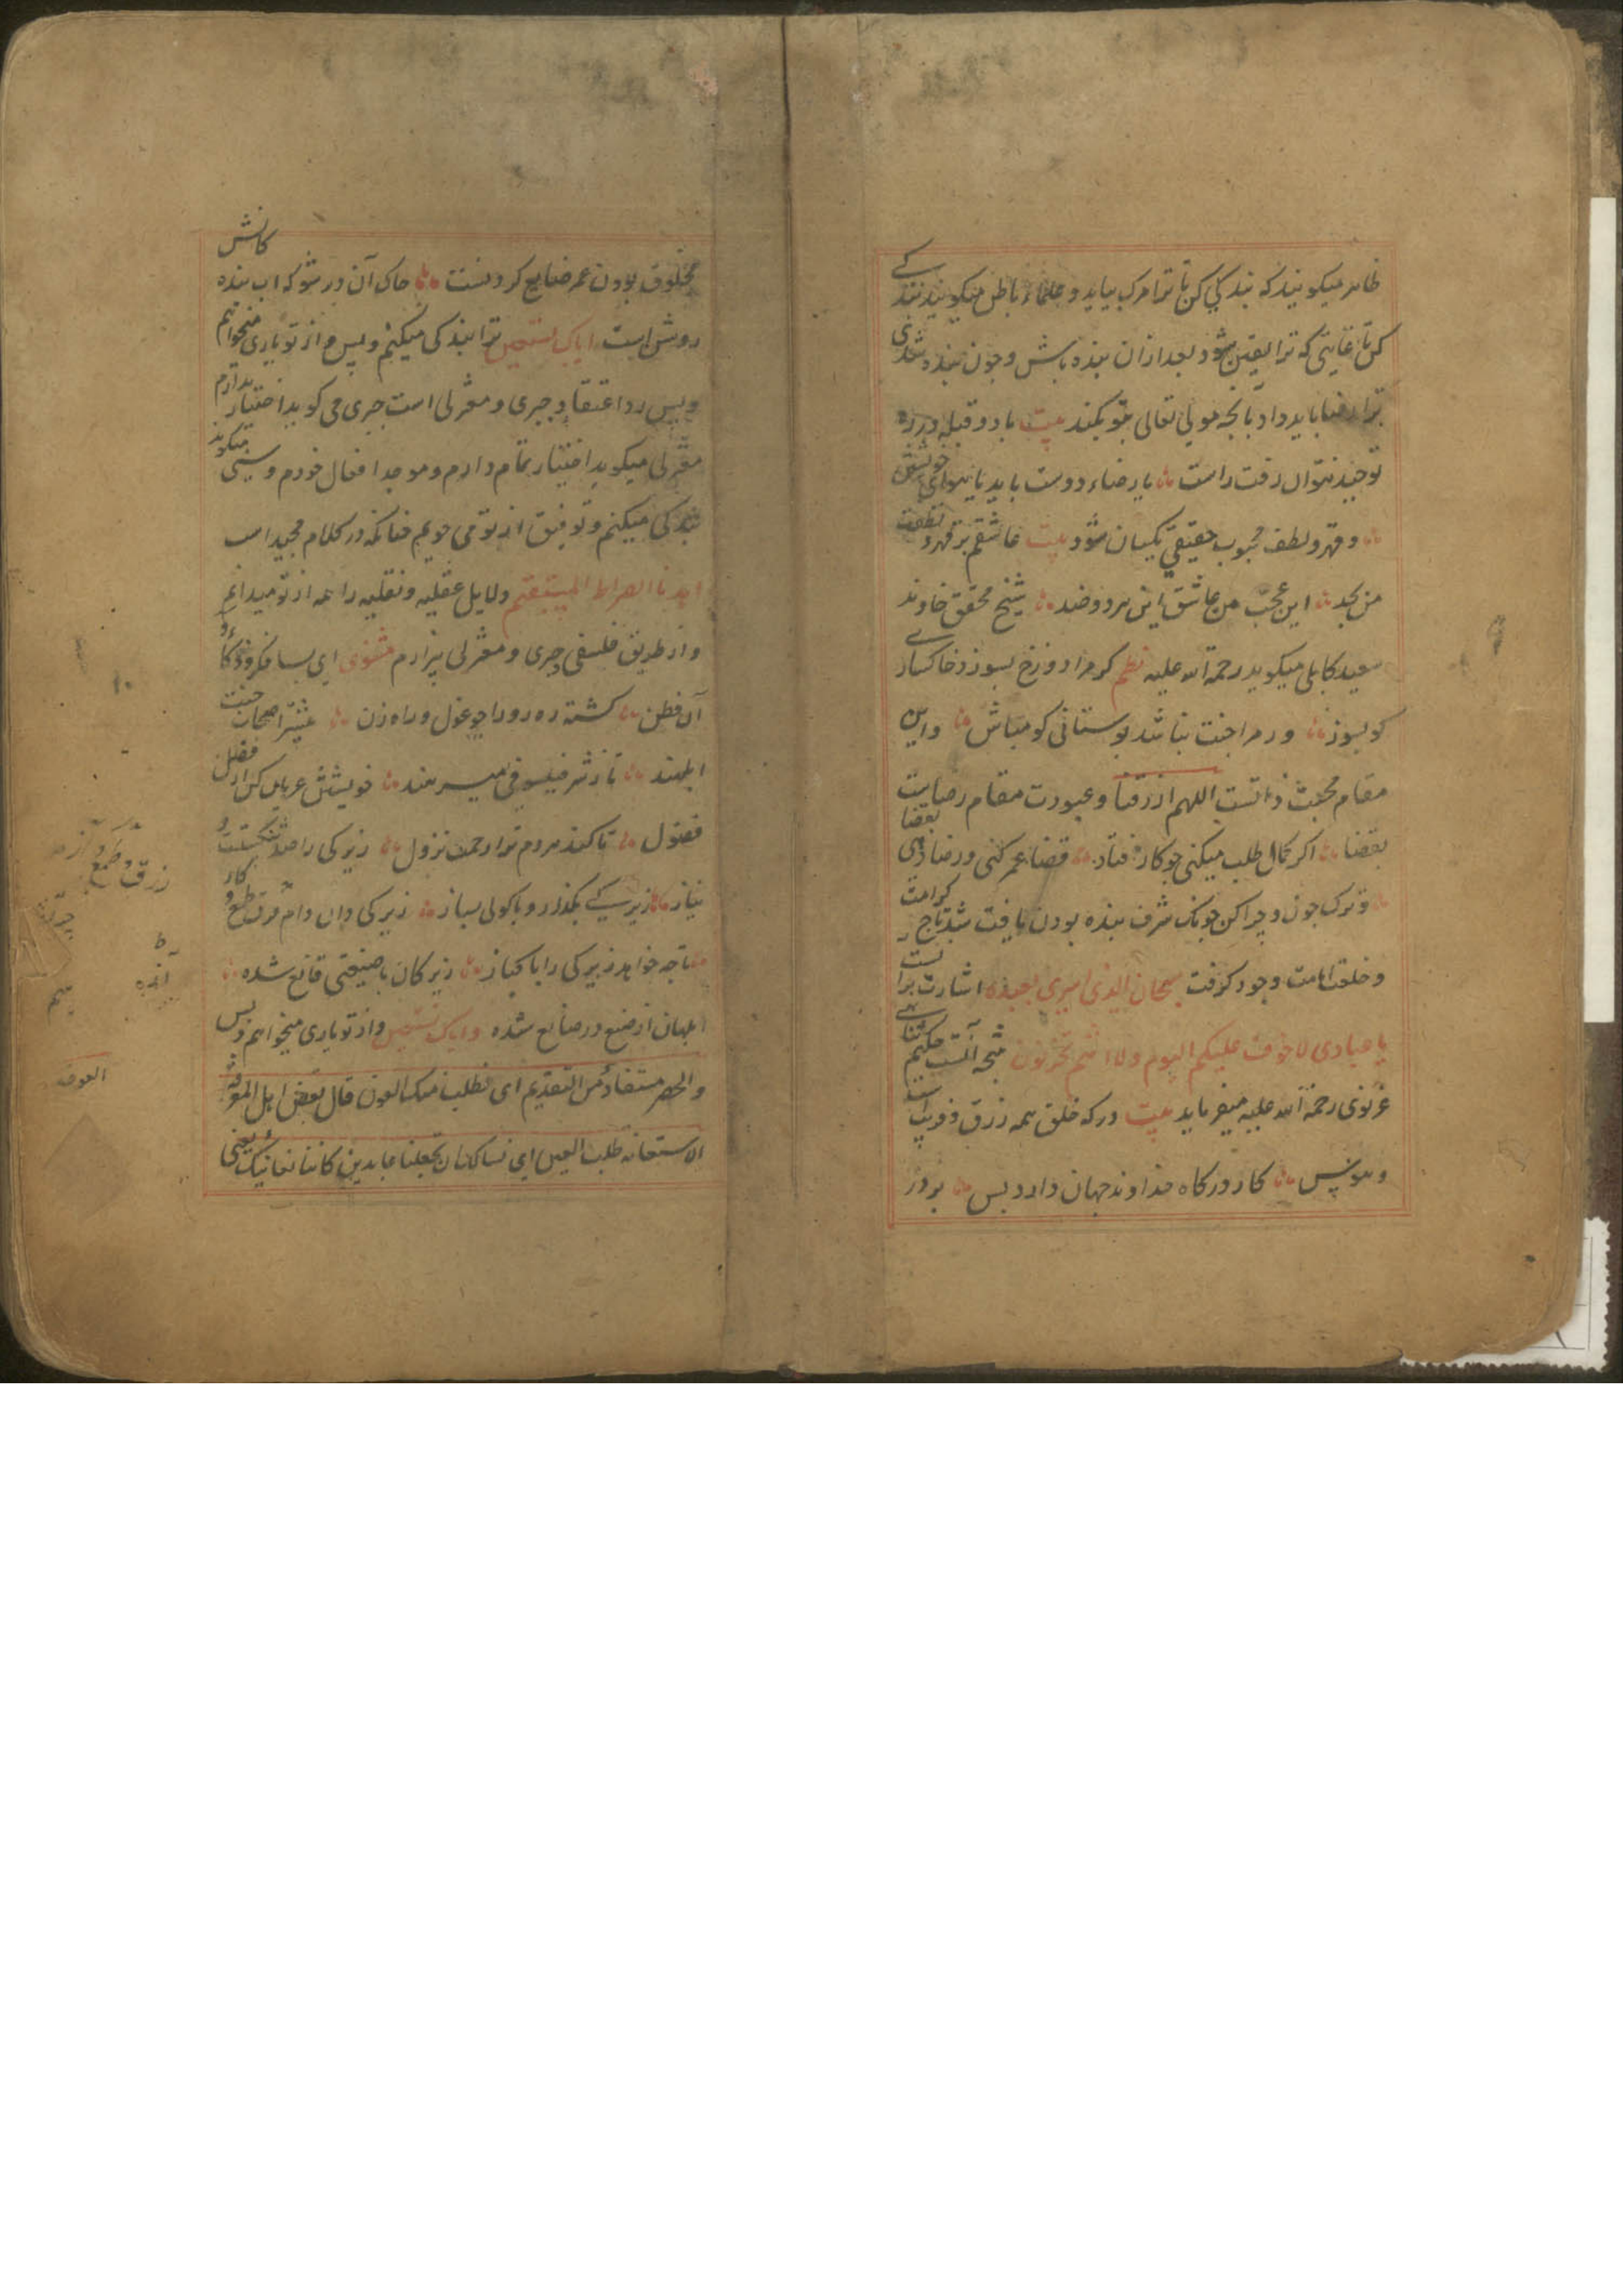 ظاهر میکویند که بندکی کن تا ترا مرک بیاید و علماء باطن میکویند بندکے
کن تا غایتی که ترا یقین شود بعد ازان بنده باش و چون بنده شدی
ترا رضا باید داد بانچه مولی تعالی بتو بکند بیت با دو قبله در ره
توحید نتوان رفت راست یا رضاء دوست باید یا هوای خویشتن
و قهر و لطف محبوب حقیقی یکسان شود بیت عاشقم بر قهر و بر لطفش
من بجد این عجب من عاشق این هر دو ضد شیخ محقق خاوند
سعید کابلی میکوید رحمة الله علیه نظم کر مرا دوزخ بسوزد خاکسارے
کو بسوز ور مرا جنت نباشد بوستانی کو مباش و این
مقام محبت ذاتست اللهم ارزقنا و عبودت مقام رضاست بقضا
بقضا اکر کمال طلب میکنی چو کار فتاد قضاء عمر کنی و رضا دهی
و ترک چون و چرا کن چونک شرف بنده بودن یافت شد تاج کرامت
و خلعت امامت وجود کرفت سبحان الذی اسری بعبده اشارت برانست
یا عبادی لا خوف علیکم الیوم ولا انتم تحزنون نتیجه آنست حکیم سنائی
غزنوی رحمة الله علیه میفرماید بیت درکه خلق همه زرق و فریب است
و هوس کار درکاه خداوند جهان دارد بس بر در
مخلوق بودن عمر ضایع کردنست خاک آن در شو که اب بنده کانش
روشن است ایاک نستعین ترا بندکی میکنیم و بس و از تو یاری میخواهم
و بس رد اعتقاد جبری و معتزلی است جبری می کوید اختیار ندارم
معتزلی میکوید اختیار تمام دارم و موجد افعال خودم و سنی میکوید
بندکی میکنم و توفیق از تو می جویم چنانکه در کلام مجید است
اهدنا الصراط المستقیم دلایل عقلیه و نقلیه را همه از تو میدانم
و از طریق فلسفی و جبری و معتزلی بیزارم مثنوی ای بسا فکر و ذکاء و
آن فطن کشته ره رو را چو غول و راه زن بیشتر اصحاب جنت
ابلهند تا ز شر فیلسوفی میرهند خویشتن عریان کن از فضل
فضول تا کند هر دم ترا رحمت نزول زیرکی را ضد شکستست و
نیاز زیرکے بکذار و با کولی بساز زیرکی دان دام و طمع و کاز
تا چه خواهد زیرکی را پاکباز زیرکان با صنعتی قانع شده
ابلهان از صنع در صانع شده و ایاک نستعین و از تو یاری میخواهم و بس
والحصر مستفاد من التقدیم ای نطلب منک العون قال بعض اهل المعرفة
الاستعانة طلب العین ای نسالک ان تجعلنا عابدین کاننا نعاینک یعنی
زرق و طمع و آز
العون